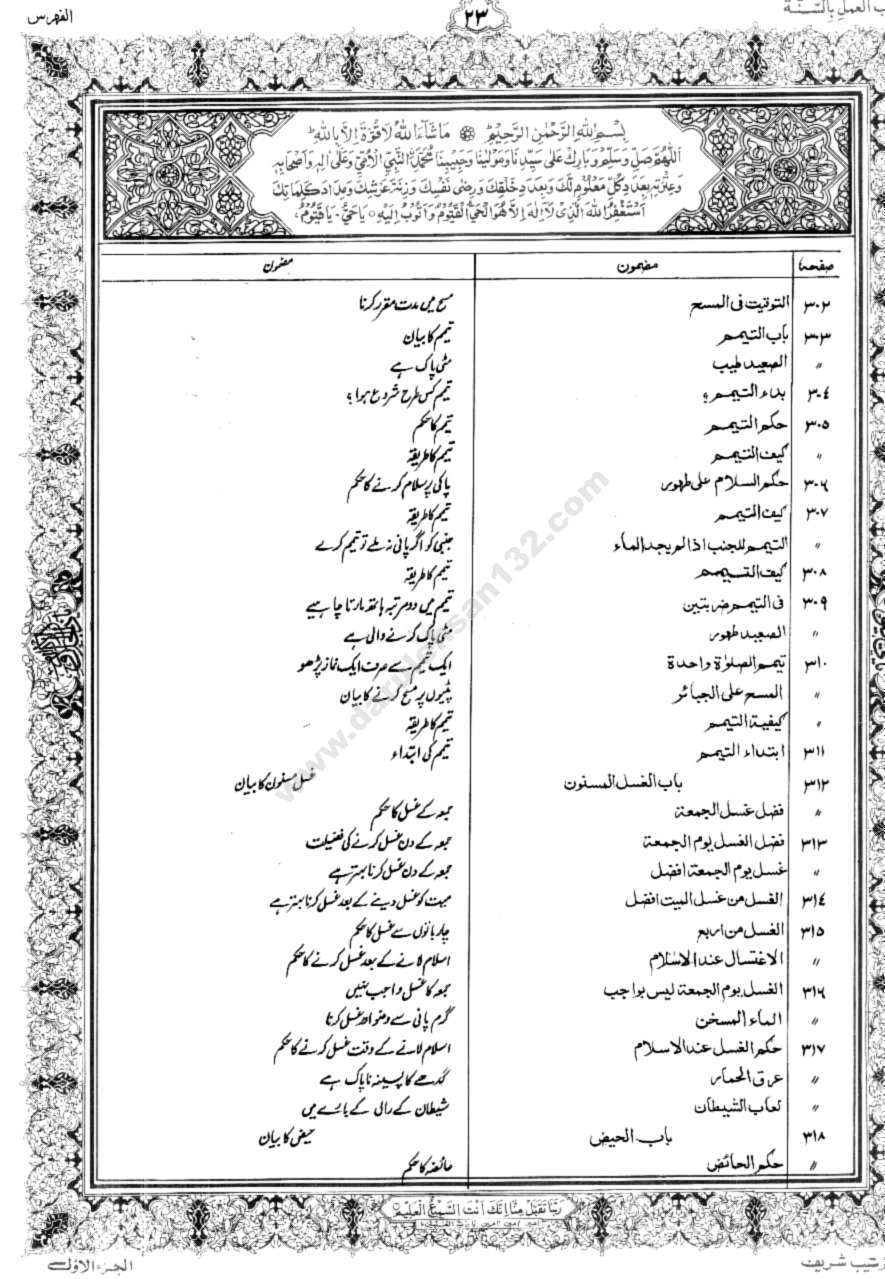 ب العمل بالسنة ٢٣ الفهرس
بسم الله الرحمن الرحيم ما شاء الله لا قوة الا بالله
اللهم صل وسلم وبارك على سيدنا ومولينا وحبيبنا محمد النبي الأمي وعلى اله واصحابه
وعترته بعدد كل معلوم لك وبعدد خلقك ورضى نفسك وزنة عرشك ومداد كلماتك
استغفر الله الذى لا اله الا هو الحي القيوم واتوب اليه يا حي يا قيوم
صفحہ مضمون مضمون
٣٠٢ التوقيت فى المسح مسح میں مدت مقرر کرنا
٣٠٣ باب التيمم تیمم کا بیان
〃 الصعيد طيب مٹی پاک ہے
٣٠٤ بداء التيمم؟ تیمم کس طرح شروع ہوا؟
٣٠٥ حكم التيمم تیمم کا حکم
〃 كيف التيمم تیمم کا طریقہ
٣٠٦ حكم السلام على طهور پاکی پر سلام کرنے کا حکم
٣٠٧ كيف التيمم تیمم کا طریقہ
〃 التيمم للجنب اذا لم يجد الماء جنبی کو اگر پانی نہ ملے تو تیمم کرے
٣٠٨ كيف التيمم تیمم کا طریقہ
٣٠٩ فى التيمم ضربتين تیمم میں دو مرتبہ ہاتھ مارنا چاہیے
〃 الصعيد طهور مٹی پاک کرنے والی ہے
٣١٠ تيمم الصلوٰة واحدة ایک تیمم سے صرف ایک نماز پڑھو
〃 المسح على الجبائر پٹیوں پر مسح کرنے کا بیان
〃 كيفية التيمم تیمم کا طریقہ
٣١١ ابتداء التيمم تیمم کی ابتداء
٣١٢ باب الغسل المسنون غسل مسنون کا بیان
〃 فضل غسل الجمعة جمعہ کے غسل کا حکم
٣١٣ فضل الغسل يوم الجمعة جمعہ کے دن غسل کرنے کی فضیلت
〃 غسل يوم الجمعة افضل جمعہ کے دن غسل کرنا بہتر ہے
٣١٤ الغسل من غسل الميت افضل میت کو غسل دینے کے بعد غسل کرنا بہتر ہے
٣١٥ الغسل من اربع چار باتوں سے غسل کا حکم
〃 الاغتسال عند الاسلام اسلام لانے کے بعد غسل کرنے کا حکم
٣١٦ الغسل يوم الجمعة ليس بواجب جمعہ کا غسل واجب نہیں
〃 الماء المسخن گرم پانی سے وضو اور غسل کرنا
٣١٧ حكم الغسل عند الاسلام اسلام لانے کے وقت غسل کرنے کا حکم
〃 عرق الحمار گدھے کا پسینہ ناپاک ہے
〃 لعاب الشيطان شیطان کے رالی کے بارے میں
٣١٨ باب الحيض حیض کا بیان
〃 حكم الحائض حائضہ کا حکم
ربنا تقبل منا انك انت السميع العليم
رتيب شريف الجزء الاول
www.darulehsan132.com